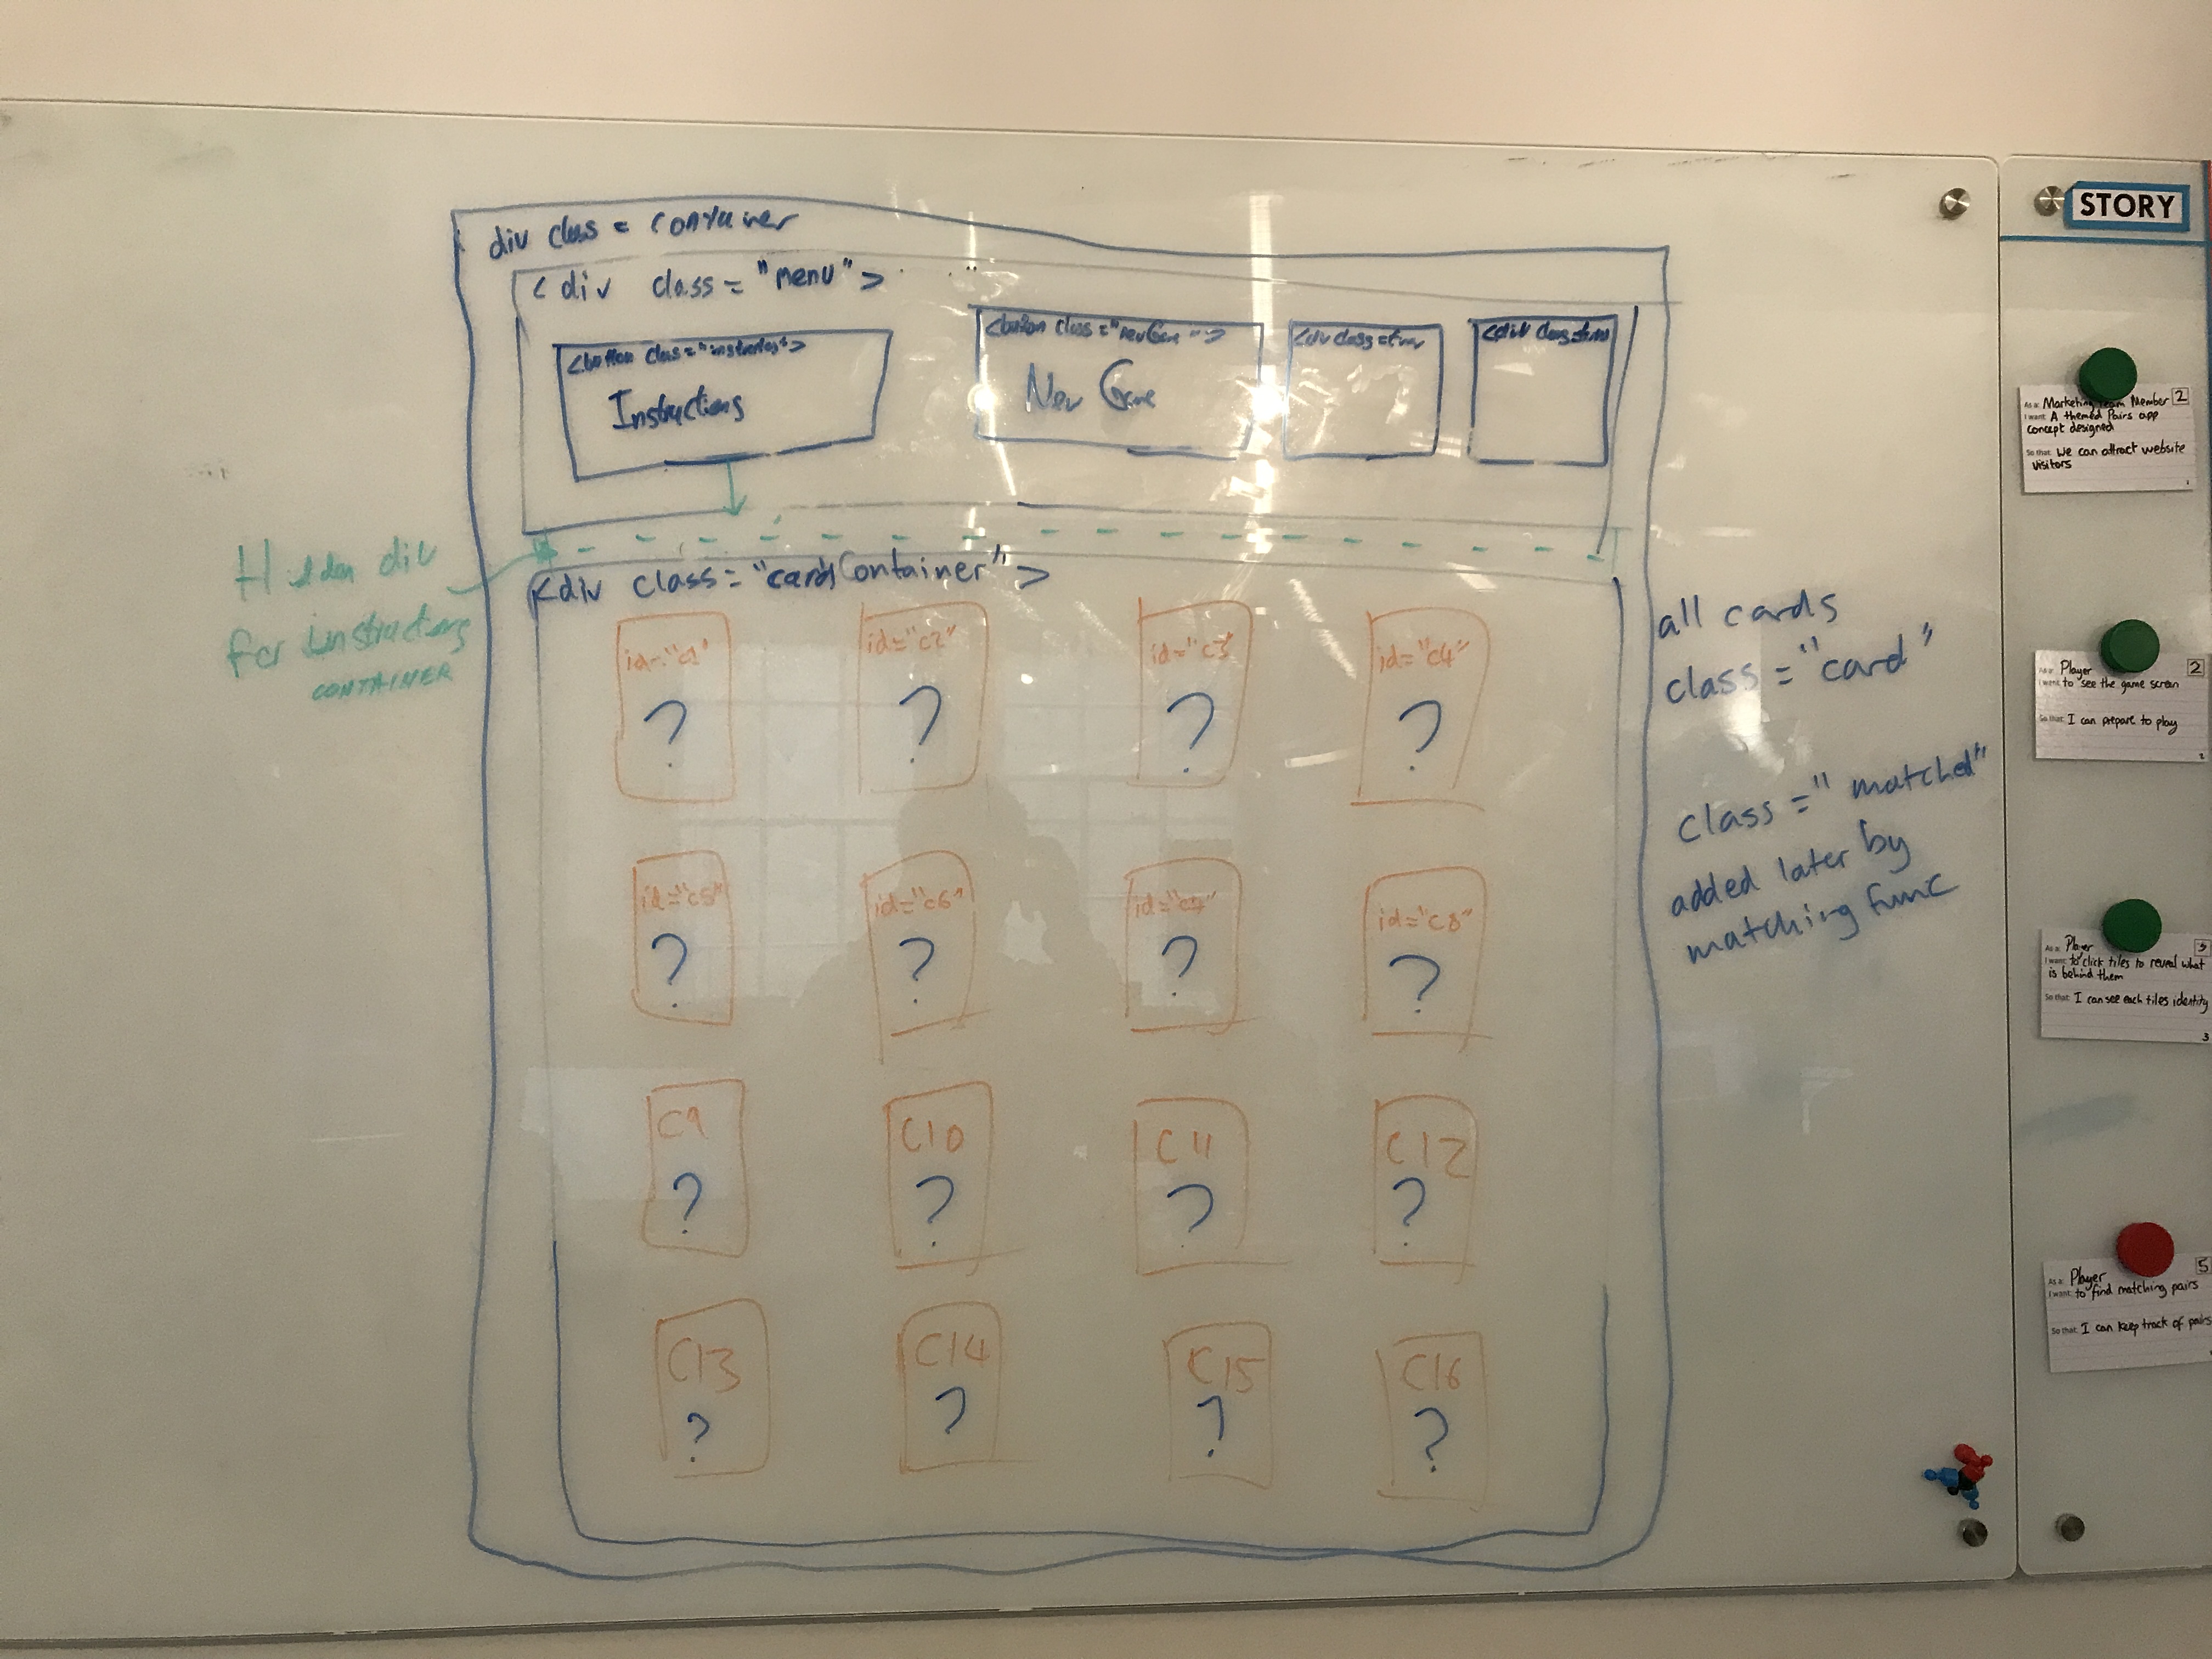 div class = container
<div class = "menu">
Instructions
<button class="newGame">
New Game
<div class=
<div class=
Hidden div
for instructions
CONTAINER
<div class="cardsContainer">
id="c1"
?
id="c2"
?
id="c3"
?
id="c4"
?
id="c5"
?
id="c6"
?
id="c7"
?
id="c8"
?
C9
?
C10
?
C11
?
C12
?
C13
?
C14
?
C15
?
C16
?
all cards
class = "card"
class = "matched"
added later by
matching func
STORY
As a: Marketing Team Member 2
I want: A themed Pairs app
concept designed
So that: We can attract website
visitors
1
As a: Player 2
I want: to see the game screen
So that: I can prepare to play
2
As a: Player 3
I want: to click tiles to reveal what
is behind them
So that: I can see each tiles identity
3
As a: Player 5
I want: to find matching pairs
So that: I can keep track of pairs